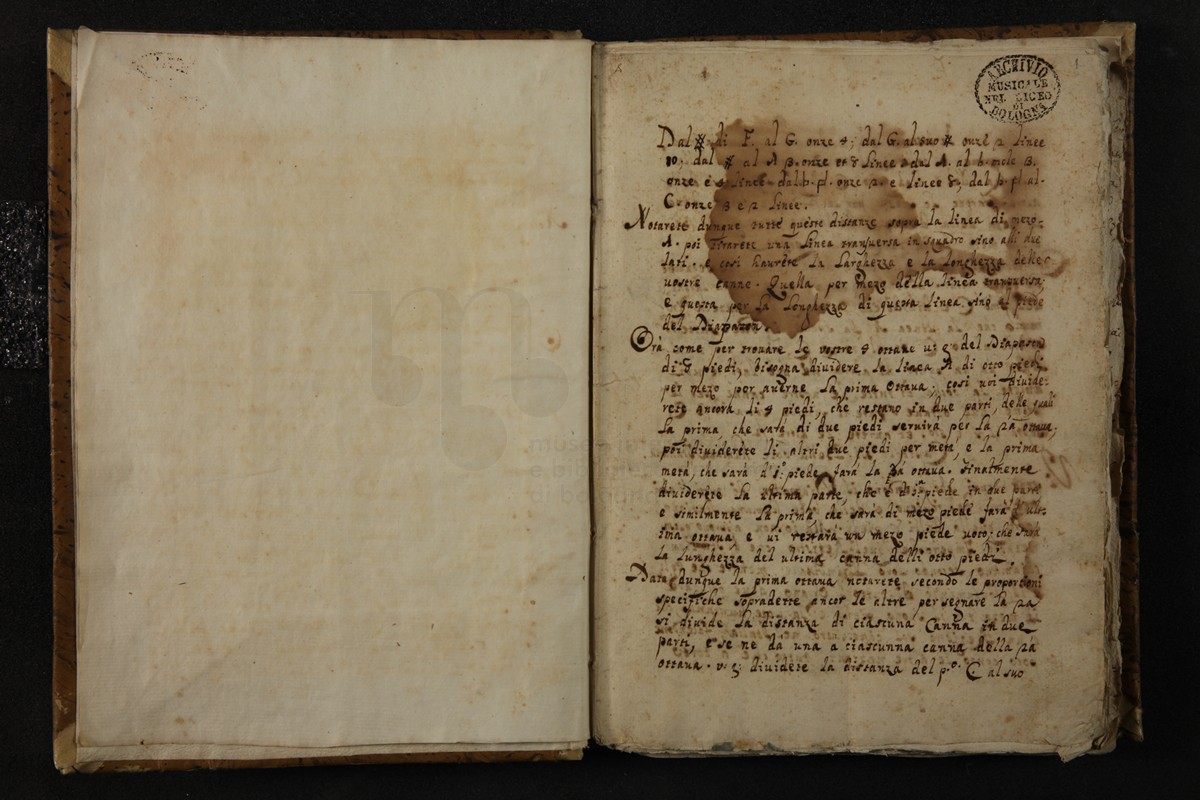 ARCHIVIO
MUSICALE
NEL LICEO
DI
BOLOGNA
1
Dal # di F. al G. onze 4; dal G. al suo # onze 2 linee
10; dal # al A B. onze linee dal A. al b. mole B.
onze e 4 linee dal b. pl. onze 2. e linee 8; dal b. pl. al
C. onze 3 e 2 linee.
Notarete dunque tutte queste distanze sopra la linea di mezo
A. poi tirarete una linea transuersa in squadro sino alli due
lati. e così haurete la larghezza e la longhezza delle
uostre canne. Quella per mezo della linea transuersa
e questa per la longhezza di questa linea sino al piede
del Diapazon.
Orà come per trouare le vostre 4 ottaue u: g: del Diapason
di 8 piedi, bisogna diuidere la linea A di otto piedi
per mezo por auerne la prima ottaua; così uoi diuide-
rete ancora li 4 piedi, che restano in due parti, delle quali
la prima che sarà di due piedi seruirà per la 2a ottaua;
poi diuiderete li altri due piedi per metà, e la prima
metà, che sarà d'1: piede farà la 3a ottaua. Finalmente
diuiderete la ultima parte, che è d'1: piede in due parti
e similmente la prima che sarà di mezo piede farà l'ult-
ima ottaua, e ui restarà un mezo piede uoto; che sarà
la lunghezza del ultima canna delli otto piedi.
Data dunque la prima ottaua notarete secondo le proportioni
specifiche sopradette ancor le altre per segnare la 2a
si diuide la distanza di ciascuna Canna in due
parti, e se ne dà una a ciascunna canna della 2a
ottaua. v. g: diuidete la distanza del p.o C al suo